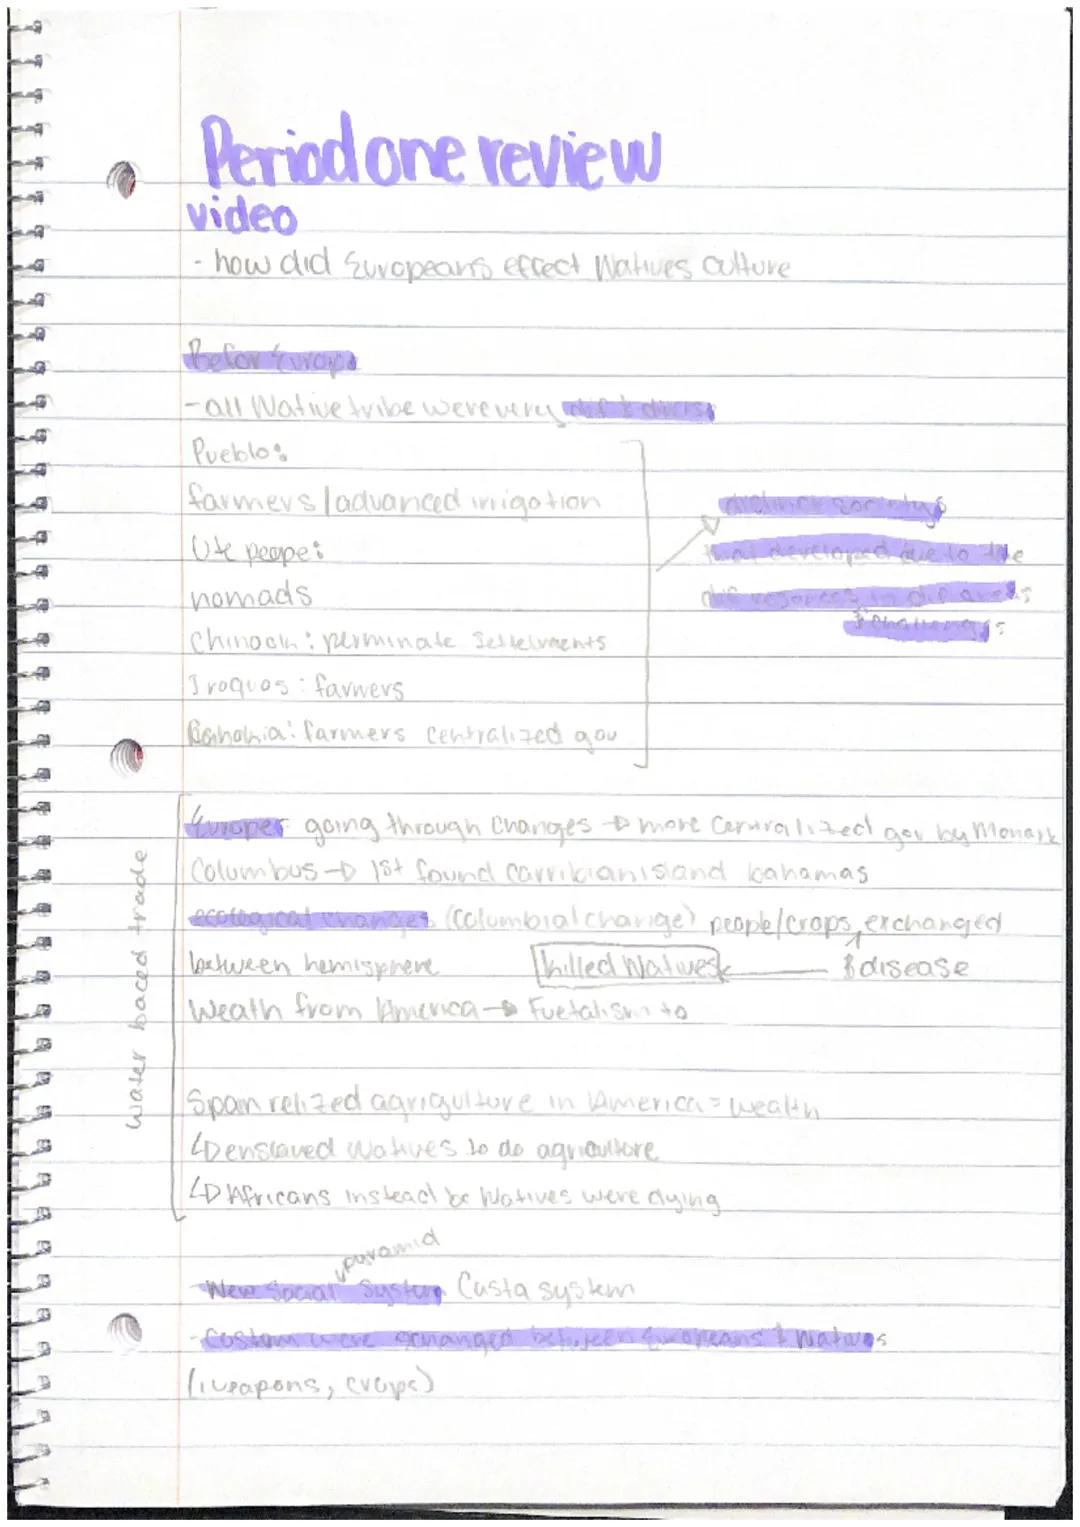 Period one review
video
- how did Europeans effect Natives culture
Befor Europe
- all Native tribe were very dif & divers
Pueblo:
farmers/advanced irrigation
Ute peope:
nomads
Chinook: perminate settelments
Iroquos: farmers
Cahohia: farmers centralized gov
societys
that developed due to the
dif resorces in dif areas
& challenges
water baced trade
Europe going through changes → more centralized gov by Monark
Columbus → 1st found carribian island bahamas
ecological changes (Columbial change) people/crops exchanged
between hemisphere killed Natives ← & disease
Weath from America → Fuetalism to
Spain relized agrigulture in America = wealth
↳ enslaved Natives to do agriculture
↳ Africans instead bc Natives were dying
pyramid
- New Social System Casta system
- Costom were exchanged between Europeans & Natives
(weapons, crops)